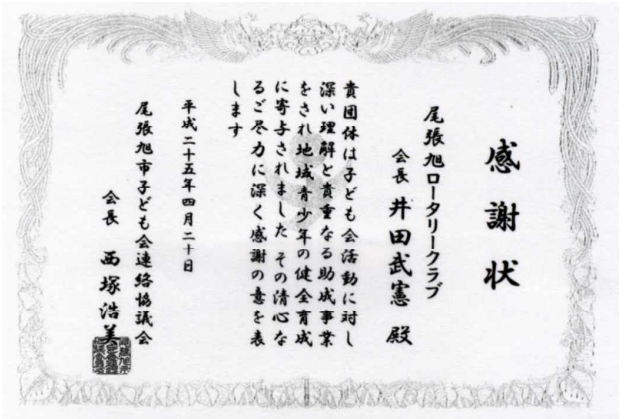 感謝状
尾張旭ロータリークラブ
会長 井田武憲 殿
貴団体は子ども会活動に対し
深い理解と貴重なる助成事業
をされ地域青少年の健全育成
に寄与されました その清心な
るご尽力に深く感謝の意を表
します
平成二十五年四月二十日
尾張旭市子ども会連絡協議会
会長 西塚浩美